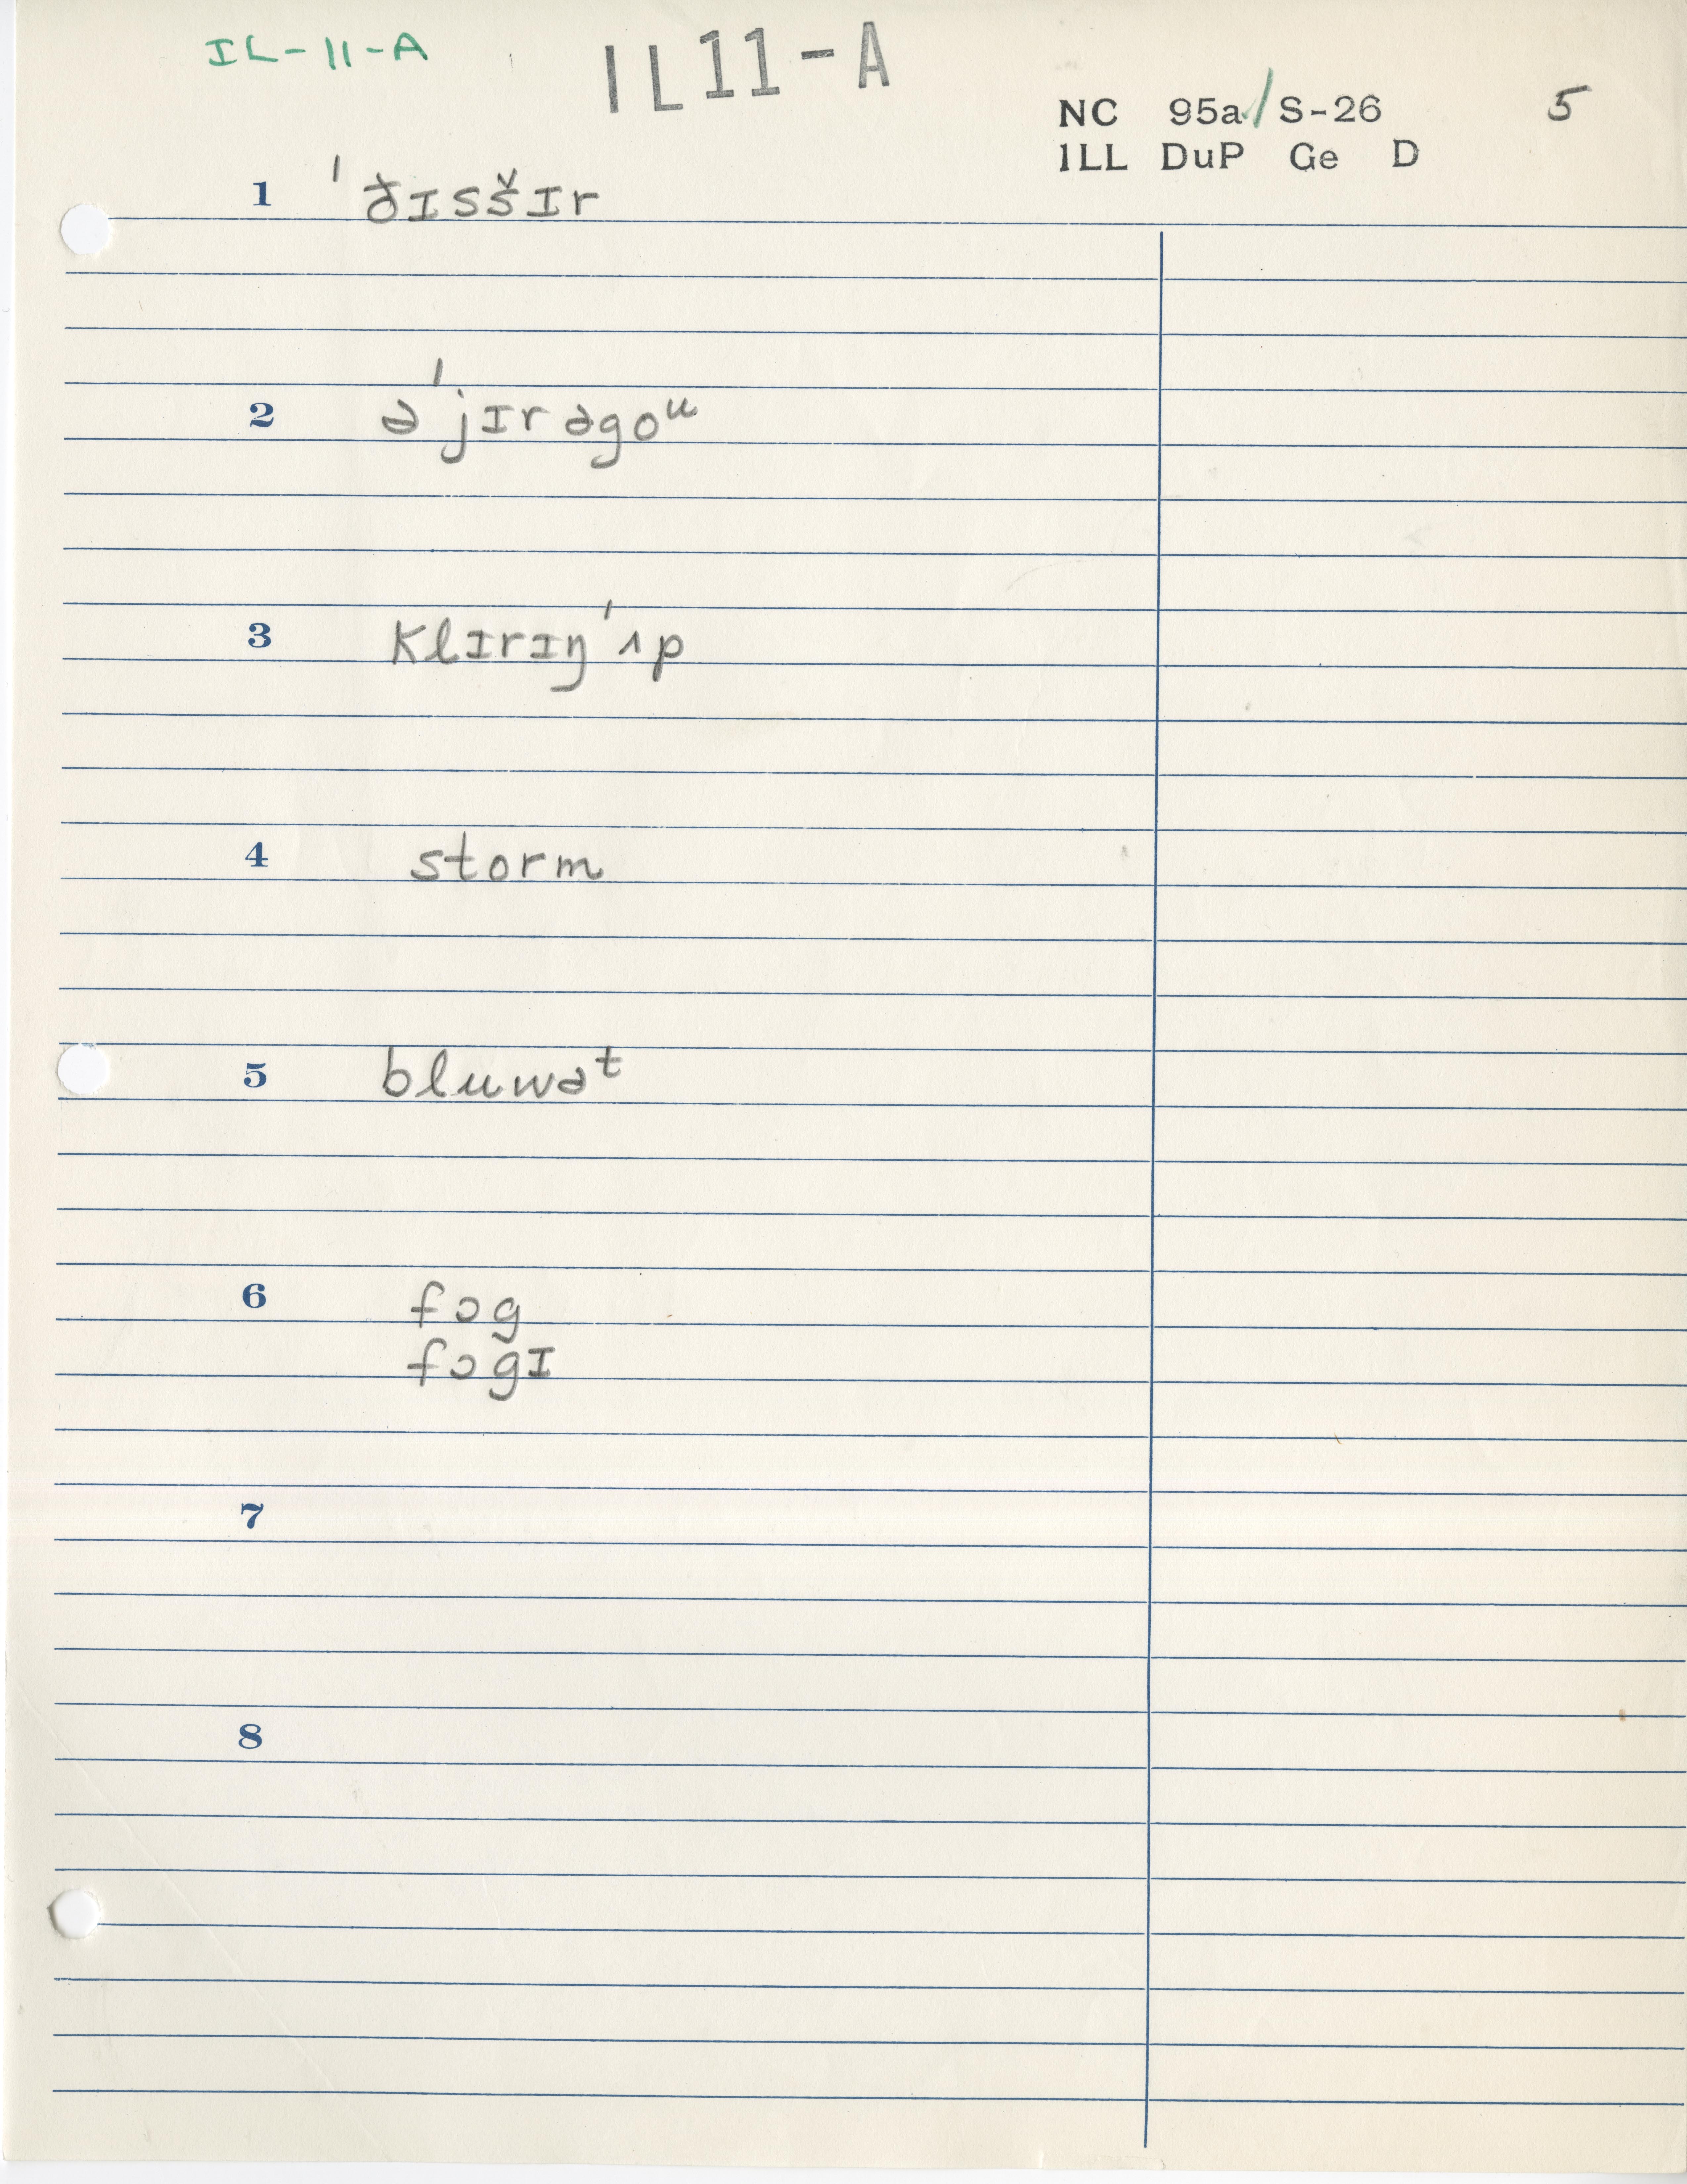 IL-11-A
IL11-A
NC 95a/S-26 5
ILL DuP Ge D
1 ˈðɪsšɪr
2 əˈjɪrəgoᵘ
3 klɪrɪŋˈʌp
4 storm
5 bluwəᵗ
6 fɔg
fɔgɪ
7
8